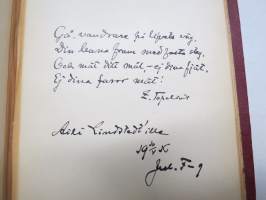 Gå, vandrare på lifvets väg,
Din bana fram med fasta steg,
Och mät ditt mål, – ej dina fjät,
Ej dina faror mät!
Z. Topelius
Aili Lindstedt'illa
19 X